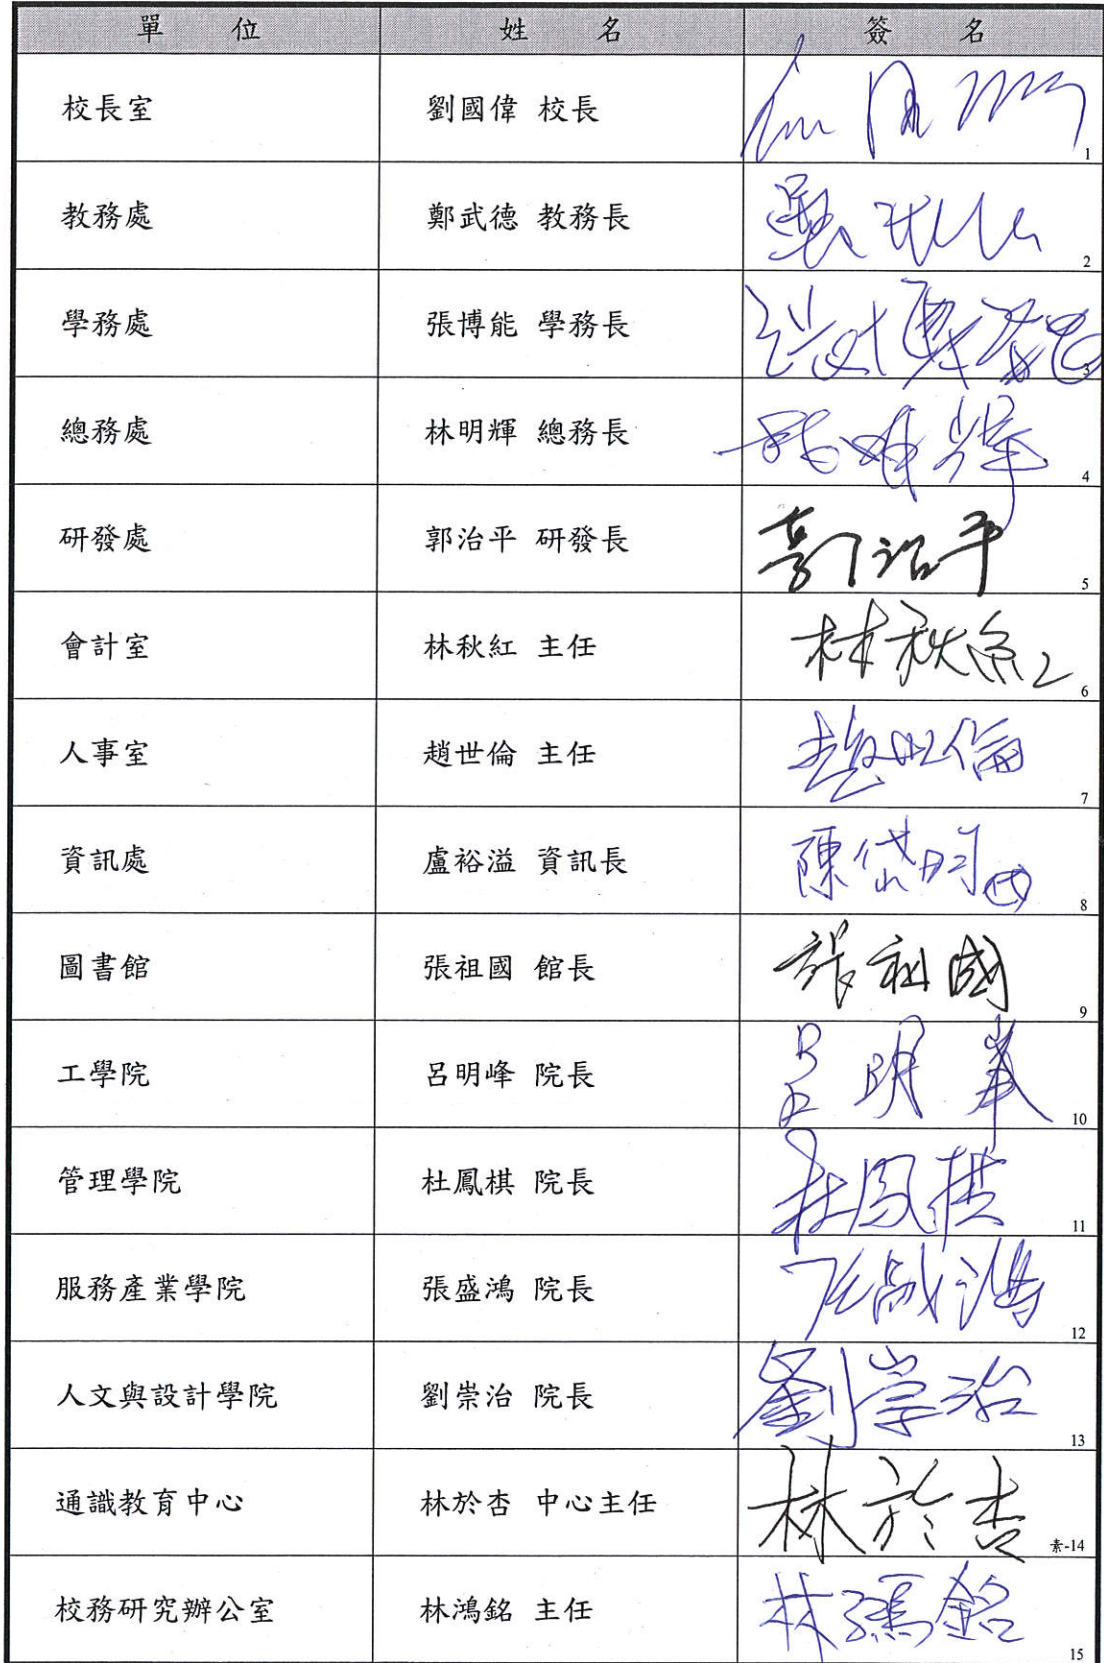 單位 姓名 簽名
校長室 劉國偉 校長 1
教務處 鄭武德 教務長 2
學務處 張博能 學務長 張博能 3
總務處 林明輝 總務長 林明輝 4
研發處 郭治平 研發長 郭治平 5
會計室 林秋紅 主任 林秋紅 6
人事室 趙世倫 主任 趙世倫 7
資訊處 盧裕溢 資訊長 陳岱明 代 8
圖書館 張祖國 館長 張祖國 9
工學院 呂明峰 院長 呂明峯 10
管理學院 杜鳳棋 院長 杜鳳棋 11
服務產業學院 張盛鴻 院長 張盛鴻 12
人文與設計學院 劉崇治 院長 劉崇治 13
通識教育中心 林於杏 中心主任 林於杏 素-14
校務研究辦公室 林鴻銘 主任 林鴻銘 15